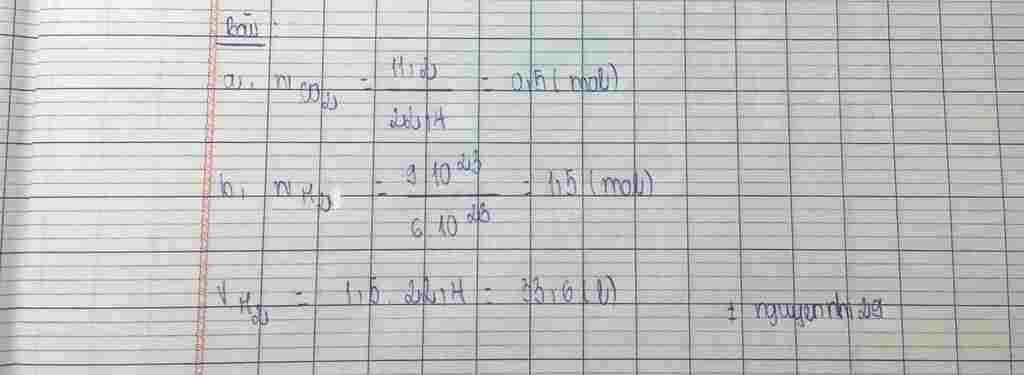 Bài:
a, nCO₂ = 11,2 / 22,4 = 0,5 (mol)
b, nH₂ = 9.10²³ / 6.10²³ = 1,5 (mol)
VH₂ = 1,5 . 22,4 = 33,6 (l)
nguyennhi29